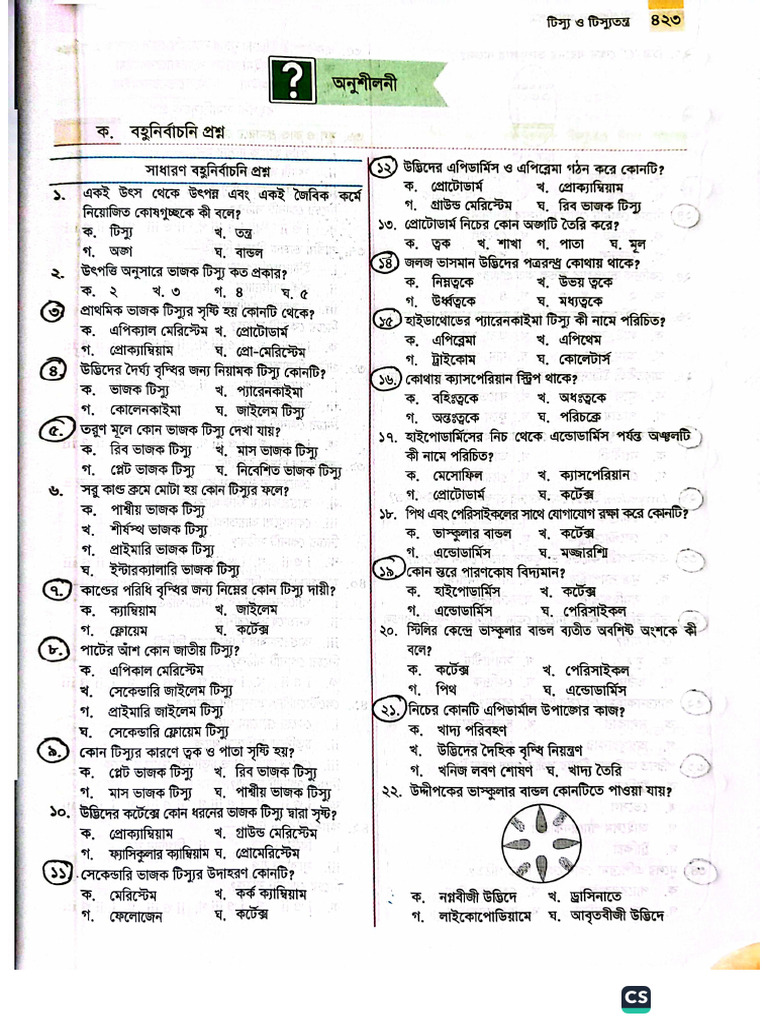 টিস্যু ও টিস্যুতন্ত্র ৪২৩
?
অনুশীলনী
ক. বহুনির্বাচনি প্রশ্ন
সাধারণ বহুনির্বাচনি প্রশ্ন
১. একই উৎস থেকে উৎপন্ন এবং একই জৈবিক কর্মে
নিয়োজিত কোষগুচ্ছকে কী বলে?
ক. টিস্যু খ. তন্ত্র
গ. অঙ্গ ঘ. বান্ডল
২. উৎপত্তি অনুসারে ভাজক টিস্যু কত প্রকার?
ক. ২ খ. ৩ গ. ৪ ঘ. ৫
৩ প্রাথমিক ভাজক টিস্যুর সৃষ্টি হয় কোনটি থেকে?
ক. এপিক্যাল মেরিস্টেম খ. প্রোটোডার্ম
গ. প্রোক্যাম্বিয়াম ঘ. প্রো-মেরিস্টেম
৪ উদ্ভিদের দৈর্ঘ্য বৃদ্ধির জন্য নিয়ামক টিস্যু কোনটি?
ক. ভাজক টিস্যু খ. প্যারেনকাইমা
গ. কোলেনকাইমা ঘ. জাইলেম টিস্যু
৫. তরুণ মূলে কোন ভাজক টিস্যু দেখা যায়?
ক. রিব ভাজক টিস্যু খ. মাস ভাজক টিস্যু
গ. প্লেট ভাজক টিস্যু ঘ. নিবেশিত ভাজক টিস্যু
৬. সরু কান্ড ক্রমে মোটা হয় কোন টিস্যুর ফলে?
ক. পার্শ্বীয় ভাজক টিস্যু
খ. শীর্ষস্থ ভাজক টিস্যু
গ. প্রাইমারি ভাজক টিস্যু
ঘ. ইন্টারক্যালারি ভাজক টিস্যু
৭. কান্ডের পরিধি বৃদ্ধির জন্য নিম্নের কোন টিস্যু দায়ী?
ক. ক্যাম্বিয়াম খ. জাইলেম
গ. ফ্লোয়েম ঘ. কর্টেক্স
৮. পাটের আঁশ কোন জাতীয় টিস্যু?
ক. এপিকাল মেরিস্টেম
খ. সেকেন্ডারি জাইলেম টিস্যু
গ. প্রাইমারি জাইলেম টিস্যু
ঘ. সেকেন্ডারি ফ্লোয়েম টিস্যু
৯. কোন টিস্যুর কারণে ত্বক ও পাতা সৃষ্টি হয়?
ক. প্লেট ভাজক টিস্যু খ. রিব ভাজক টিস্যু
গ. মাস ভাজক টিস্যু ঘ. পার্শ্বীয় ভাজক টিস্যু
১০. উদ্ভিদের কর্টেক্সে কোন ধরনের ভাজক টিস্যু দ্বারা সৃষ্ট?
ক. প্রোক্যাম্বিয়াম খ. গ্রাউন্ড মেরিস্টেম
গ. ফ্যাসিকুলার ক্যাম্বিয়াম ঘ. প্রোমেরিস্টেম
১১ সেকেন্ডারি ভাজক টিস্যুর উদাহরণ কোনটি?
ক. মেরিস্টেম খ. কর্ক ক্যাম্বিয়াম
গ. ফেলোজেন ঘ. কর্টেক্স
১২ উদ্ভিদের এপিডার্মিস ও এপিব্লেমা গঠন করে কোনটি?
ক. প্রোটোডার্ম খ. প্রোক্যাম্বিয়াম
গ. গ্রাউন্ড মেরিস্টেম ঘ. রিব ভাজক টিস্যু
১৩. প্রোটোডার্ম নিচের কোন অঙ্গটি তৈরি করে?
ক. ত্বক খ. শাখা গ. পাতা ঘ. মূল
১৪ জলজ ভাসমান উদ্ভিদের পত্ররন্ধ্র কোথায় থাকে?
ক. নিম্নত্বকে খ. উভয় ত্বকে
গ. উর্ধ্বত্বকে ঘ. মধ্যত্বকে
১৫ হাইডাথোডের প্যারেনকাইমা টিস্যু কী নামে পরিচিত?
ক. এপিব্লেমা খ. এপিথেম
গ. ট্রাইকোম ঘ. কোলেটার্স
১৬. কোথায় ক্যাসপেরিয়ান স্ট্রিপ থাকে?
ক. বহিঃত্বকে খ. অধঃত্বকে
গ. অন্তঃত্বকে ঘ. পরিচক্রে
১৭. হাইপোডার্মিসের নিচ থেকে এন্ডোডার্মিস পর্যন্ত অঞ্চলটি
কী নামে পরিচিত?
ক. মেসোফিল খ. ক্যাসপেরিয়ান
গ. প্রোটোডার্ম ঘ. কর্টেক্স
১৮. পিথ এবং পেরিসাইকলের সাথে যোগাযোগ রক্ষা করে কোনটি?
ক. ভাস্কুলার বান্ডল খ. কর্টেক্স
গ. এন্ডোডার্মিস ঘ. মজ্জারশ্মি
১৯. কোন স্তরে পারণকোষ বিদ্যমান?
ক. হাইপোডার্মিস খ. কর্টেক্স
গ. এন্ডোডার্মিস ঘ. পেরিসাইকল
২০. স্টিলির কেন্দ্রে ভাস্কুলার বান্ডল ব্যতীত অবশিষ্ট অংশকে কী
বলে?
ক. কর্টেক্স খ. পেরিসাইকল
গ. পিথ ঘ. এন্ডোডার্মিস
২১. নিচের কোনটি এপিডার্মাল উপাঙ্গের কাজ?
ক. খাদ্য পরিবহণ
খ. উদ্ভিদের দৈহিক বৃদ্ধি নিয়ন্ত্রণ
গ. খনিজ লবণ শোষণ ঘ. খাদ্য তৈরি
২২. উদ্দীপকের ভাস্কুলার বান্ডল কোনটিতে পাওয়া যায়?
ক. নগ্নবীজী উদ্ভিদে খ. ড্রাসিনাতে
গ. লাইকোপোডিয়ামে ঘ. আবৃতবীজী উদ্ভিদে
CS